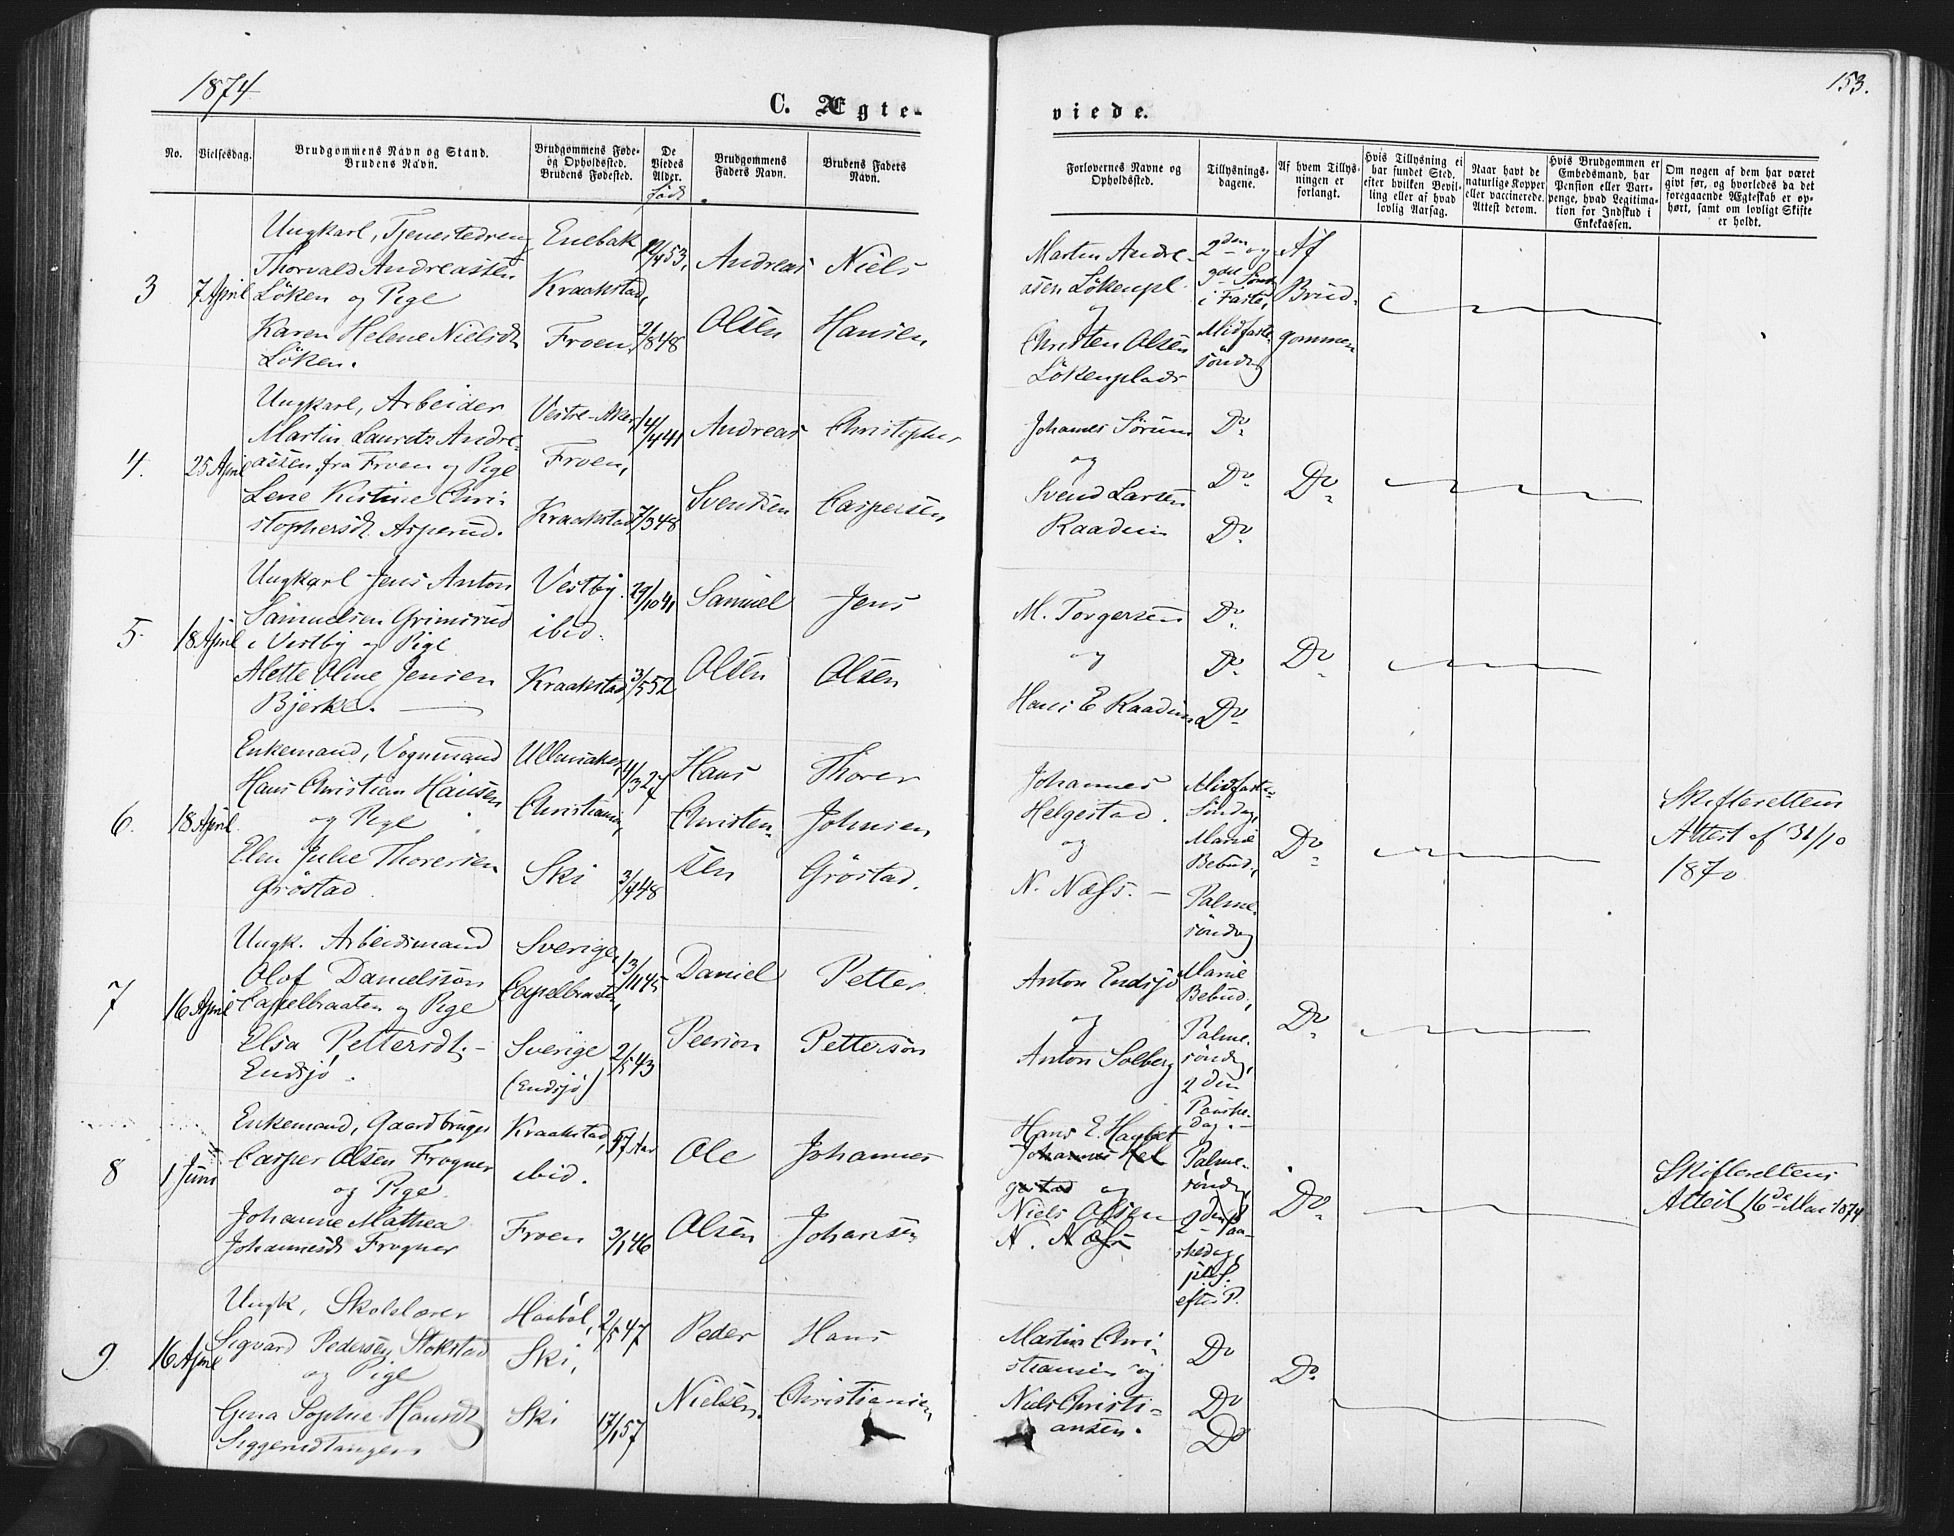 1874
C. Ægte-
viede.
153.
No.
Vielsesdag.
Brudgommens Navn og Stand.
Brudens Navn.
Brudgommens Føde-
og Opholdssted.
Brudens Fødested.
De
Viedes
Alder.
født
Brudgommens
Faders Navn.
Brudens Faders
Navn.
Forlovernes Navne og
Opholdssted.
Tillysnings-
dagene.
Af hvem Tillys-
ningen er
forlangt.
Hvis Tillysning ei
har fundet Sted,
efter hvilken Bevil-
ling eller af hvad
lovlig Aarsag.
Naar havt de
naturlige Kopper
eller vaccinerede.
Attest derom.
Hvis Brudgommen er
Embedsmand, har
Pension eller Vart-
penge, hvad Legitima-
tion for Indskud i
Enkekassen.
Om nogen af dem har været
givt før, og hvorledes da det
foregaaende Ægteskab er op-
hørt, samt om lovligt Skifte
er holdt.
3
7 April
Ungkarl, Tjenestedreng
Thorvald Andreassen
Löken og Pige
Karen Helene Nielsdt
Löken.
Enebak
Kraakstad,
Froen,
2/8 48
Andreas
Olsen
Niels
Hansen
Martin Andre-
asen Lökenpl.
og
Christen Olsen
Lökenplads
2den og
3die Sönd
i Faste,
Midfaste-
söndag
Af
Brud-
gommen
4.
25 April
Ungkarl, Arbeider
Martin Lauritz Andre-
assen, fra Froen og Pige
Lene Kistine Chri-
stophersdt Asperud.
Vestre-Aker,
Froen,
Kraakstad
14/4 41
7/3 48
Andreas
Svendsen
Christopher
Caspersen
Johannes Sörum
og
Svend Larsen
Raadum
Do
Do
Do
Do
5.
18 April
Ungkarl Jens Anton
Samuelsen Grimsrud
i Vestby og Pige
Alette Oline Jensen
Bjerke.
Vestby.
ibid.
Kraakstad
29/10 41
3/5 52
Samuel
Olsen
Jens
Olsen
M. Torgersen
og
Hans E Raadum
Do
Do
Do
Do
6.
18 April
Enkemand, Vognmand
Hans Christian Hansen
og Pige
Elen Julie Thoresen
Gröstad.
Ullensaker,
Christiania,
Ski
4/3 27
3/4 48
Hans
Christen-
sen
Thorer
Johnsen
Gröstad.
Johannes
Helgestad.
og
N. Næss.
Midfaste-
Söndag,
Mariæ
Bebud.,
Palme-
söndag
Do
Skifterettens
Attest af 31/10
1870
7
16 April
Ungk. Arbeidsmand
Olof Danielsson
Capelbraaten og Pige
Elsa Pettersdt.
Endsjö.
Sverige,
Capelbraaten,
Sverige
(Endsjö)
13/11 45
2/5 43
Daniel
Peerson
Petter
Petterson
Anton Endsjö
og
Anton Solberg
Mariæ
Bebud.,
Palme-
söndag,
2den
Paaske-
dag.
Do
8
1 Juni
Enkemand, Gaardbruger
Casper Olsen Frogner
og Pige
Johanne Mathea
Johannesdt Frogner
Kraakstad,
ibid.
Froen
57 Aar
3/1 46
Ole
Olsen
Johannes
Johansen
Hans E. Haubet
Johannes Hel
gestad og
Niels Olsen
N. Næss
Palme-
söndag,
2den Paa-
skedag,
1ste S.
efter P.
Do
Skifterettens
Attest 16de Mai 1874
9.
16 April
Ungk, Skolelærer
Sigvard Pedersen, Stokstad
og Pige
Gina Sophie Hansdt
Siggerudtangen
Haaböl,
Ski,
Ski
2/5 47
17/1 57
Peder
Nielsen.
Hans
Christiansen
Martin Chri-
stiansen og
Niels Christi-
ansen.
Do
Do
Do
Do